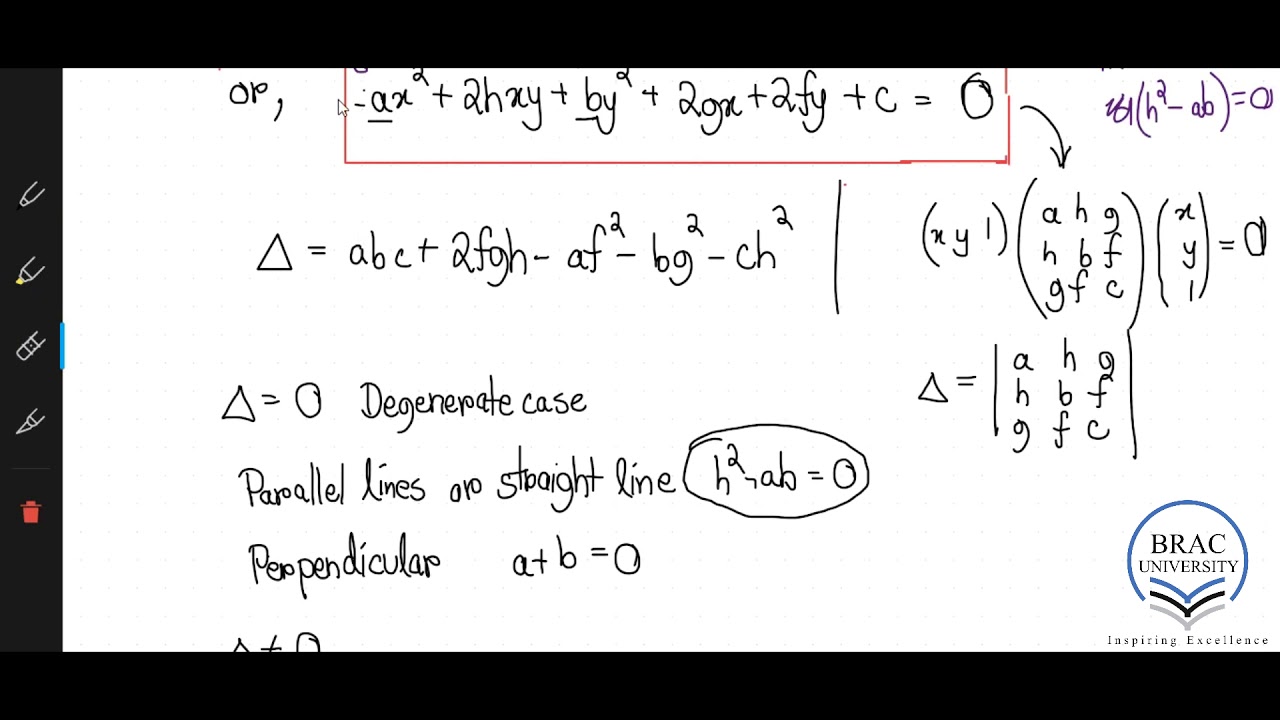 or, ax² + 2hxy + by² + 2gx + 2fy + c = 0
(h² - ab) = 0
(x y 1) (a h g
h b f
g f c) (x
y
1) = 0
Δ = abc + 2fgh - af² - bg² - ch²
Δ = | a h g
h b f
g f c |
Δ = 0 Degenerate case
Parallel lines or straight line h² - ab = 0
Perpendicular a + b = 0
Δ ≠ 0
BRAC
UNIVERSITY
Inspiring Excellence